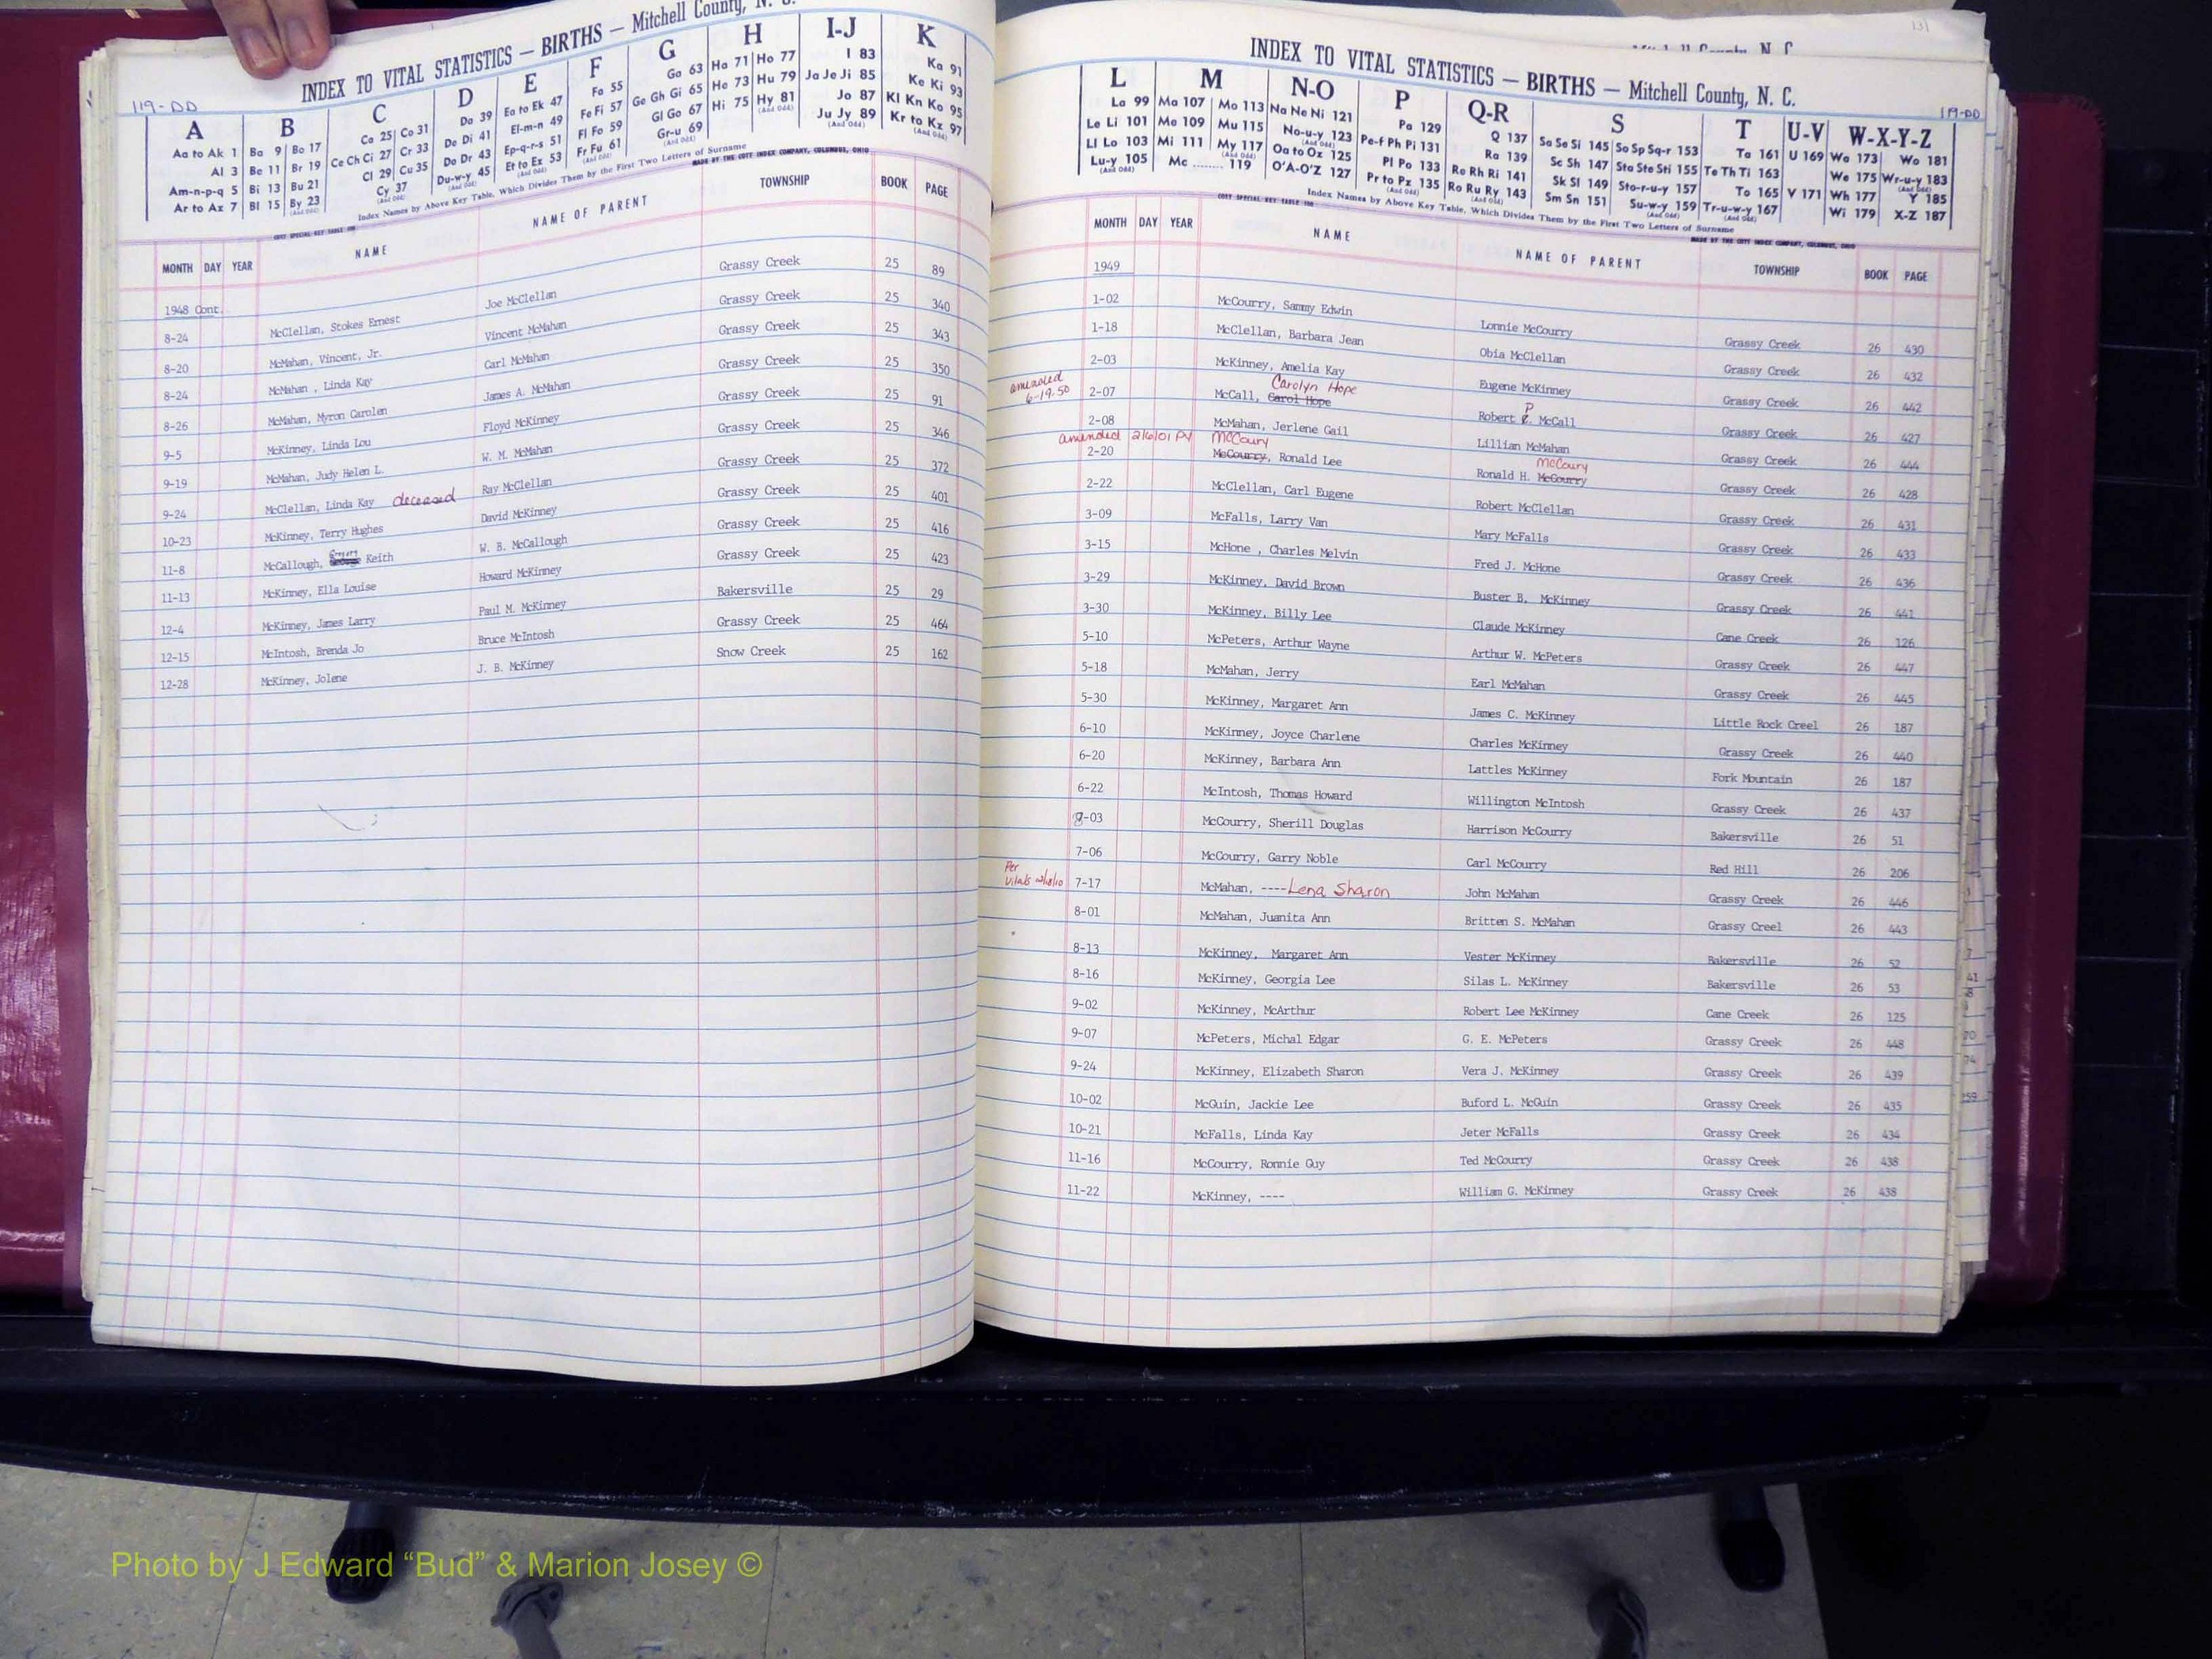 INDEX TO VITAL STATISTICS — BIRTHS — Mitchell County, N. C.
119-DD
A B C D E F G H I-J K
Aa to Ak 1 Ba 9 Bo 17 Ca 25 Co 31 Da 39 Ea to Ek 47 Fa 55 Ga 63 Ha 71 Ho 77 I 83 Ka 91
Al 3 Be 11 Br 19 Ce Ch Ci 27 Cr 33 De Di 41 El-m-n 49 Fe Fi 57 Ge Gh Gi 65 He 73 Hu 79 Ja Je Ji 85 Ke Ki 93
Am-n-p-q 5 Bi 13 Bu 21 Cl 29 Cu 35 Do Dr 43 Ep-q-r-s 51 Fl Fo 59 Gl Go 67 Hi 75 Hy 81 Jo 87 Kl Kn Ko 95
Ar to Az 7 Bl 15 By 23 Cy 37 Du-w-y 45 Et to Ez 53 Fr Fu 61 Gr-u 69 Ju Jy 89 Kr to Kz 97
Index Names by Above Key Table, Which Divides Them by the First Two Letters of Surname
MADE BY THE COTT INDEX COMPANY, COLUMBUS, OHIO
MONTH DAY YEAR NAME NAME OF PARENT TOWNSHIP BOOK PAGE
1948 Cont.
8-24 McClellan, Stokes Ernest Joe McClellan Grassy Creek 25 89
8-20 McMahan, Vincent, Jr. Vincent McMahan Grassy Creek 25 340
8-24 McMahan , Linda Kay Carl McMahan Grassy Creek 25 343
8-26 McMahan, Myron Carolen James A. McMahan Grassy Creek 25 350
9-5 McKinney, Linda Lou Floyd McKinney Grassy Creek 25 91
9-19 McMahan, Judy Helen L. W. M. McMahan Grassy Creek 25 346
9-24 McClellan, Linda Kay deceased Ray McClellan Grassy Creek 25 372
10-23 McKinney, Terry Hughes David McKinney Grassy Creek 25 401
11-8 McCallough, Keith W. B. McCallough Grassy Creek 25 416
11-13 McKinney, Ella Louise Howard McKinney Grassy Creek 25 423
12-4 McKinney, James Larry Paul M. McKinney Bakersville 25 29
12-15 McIntosh, Brenda Jo Bruce McIntosh Grassy Creek 25 464
12-28 McKinney, Jolene J. B. McKinney Snow Creek 25 162
131
INDEX TO VITAL STATISTICS — BIRTHS — Mitchell County, N. C.
119-DD
L M N-O P Q-R S T U-V W-X-Y-Z
La 99 Ma 107 Mo 113 Na Ne Ni 121 Pa 129 Q 137 Sa Se Si 145 So Sp Sq-r 153 Ta 161 U 169 Wa 173 Wo 181
Le Li 101 Me 109 Mu 115 No-u-y 123 Pe-f Ph Pi 131 Ra 139 Sc Sh 147 Sta Ste Sti 155 Te Th Ti 163 We 175 Wr-u-y 183
Ll Lo 103 Mi 111 My 117 Oa to Oz 125 Pl Po 133 Re Rh Ri 141 Sk Sl 149 Sto-r-u-y 157 To 165 V 171 Wh 177 Y 185
Lu-y 105 Mc ........ 119 O'A-O'Z 127 Pr to Pz 135 Ro Ru Ry 143 Sm Sn 151 Su-w-y 159 Tr-u-w-y 167 Wi 179 X-Z 187
Index Names by Above Key Table, Which Divides Them by the First Two Letters of Surname
MADE BY THE COTT INDEX COMPANY, COLUMBUS, OHIO
MONTH DAY YEAR NAME NAME OF PARENT TOWNSHIP BOOK PAGE
1949
1-02 McCourry, Sammy Edwin Lonnie McCourry Grassy Creek 26 430
1-18 McClellan, Barbara Jean Obia McClellan Grassy Creek 26 432
2-03 McKinney, Amelia Kay Eugene McKinney Grassy Creek 26 442
amended 6-19-50 Carolyn Hope P
2-07 McCall, Carol Hope Robert E. McCall Grassy Creek 26 427
2-08 McMahan, Jerlene Gail Lillian McMahan Grassy Creek 26 444
amended 2/6/01 PY McCoury McCoury
2-20 McCourry, Ronald Lee Ronald H. McCourry Grassy Creek 26 428
2-22 McClellan, Carl Eugene Robert McClellan Grassy Creek 26 431
3-09 McFalls, Larry Van Mary McFalls Grassy Creek 26 433
3-15 McHone , Charles Melvin Fred J. McHone Grassy Creek 26 436
3-29 McKinney, David Brown Buster B. McKinney Grassy Creek 26 441
3-30 McKinney, Billy Lee Claude McKinney Cane Creek 26 126
5-10 McPeters, Arthur Wayne Arthur W. McPeters Grassy Creek 26 447
5-18 McMahan, Jerry Earl McMahan Grassy Creek 26 445
5-30 McKinney, Margaret Ann James C. McKinney Little Rock Creel 26 187
6-10 McKinney, Joyce Charlene Charles McKinney Grassy Creek 26 440
6-20 McKinney, Barbara Ann Lattles McKinney Fork Mountain 26 187
6-22 McIntosh, Thomas Howard Willington McIntosh Grassy Creek 26 437
-03 McCourry, Sherill Douglas Harrison McCourry Bakersville 26 51
7-06 McCourry, Garry Noble Carl McCourry Red Hill 26 206
Per Vitals
7-17 McMahan, ----Lena Sharon John McMahan Grassy Creek 26 446
8-01 McMahan, Juanita Ann Britten S. McMahan Grassy Creel 26 443
8-13 McKinney, Margaret Ann Vester McKinney Bakersville 26 52
8-16 McKinney, Georgia Lee Silas L. McKinney Bakersville 26 53
9-02 McKinney, McArthur Robert Lee McKinney Cane Creek 26 125
9-07 McPeters, Michal Edgar G. E. McPeters Grassy Creek 26 448
9-24 McKinney, Elizabeth Sharon Vera J. McKinney Grassy Creek 26 439
10-02 McGuin, Jackie Lee Buford L. McGuin Grassy Creek 26 435
10-21 McFalls, Linda Kay Jeter McFalls Grassy Creek 26 434
11-16 McCourry, Ronnie Guy Ted McCourry Grassy Creek 26 438
11-22 McKinney, ---- William G. McKinney Grassy Creek 26 438
Photo by J Edward “Bud” & Marion Josey ©